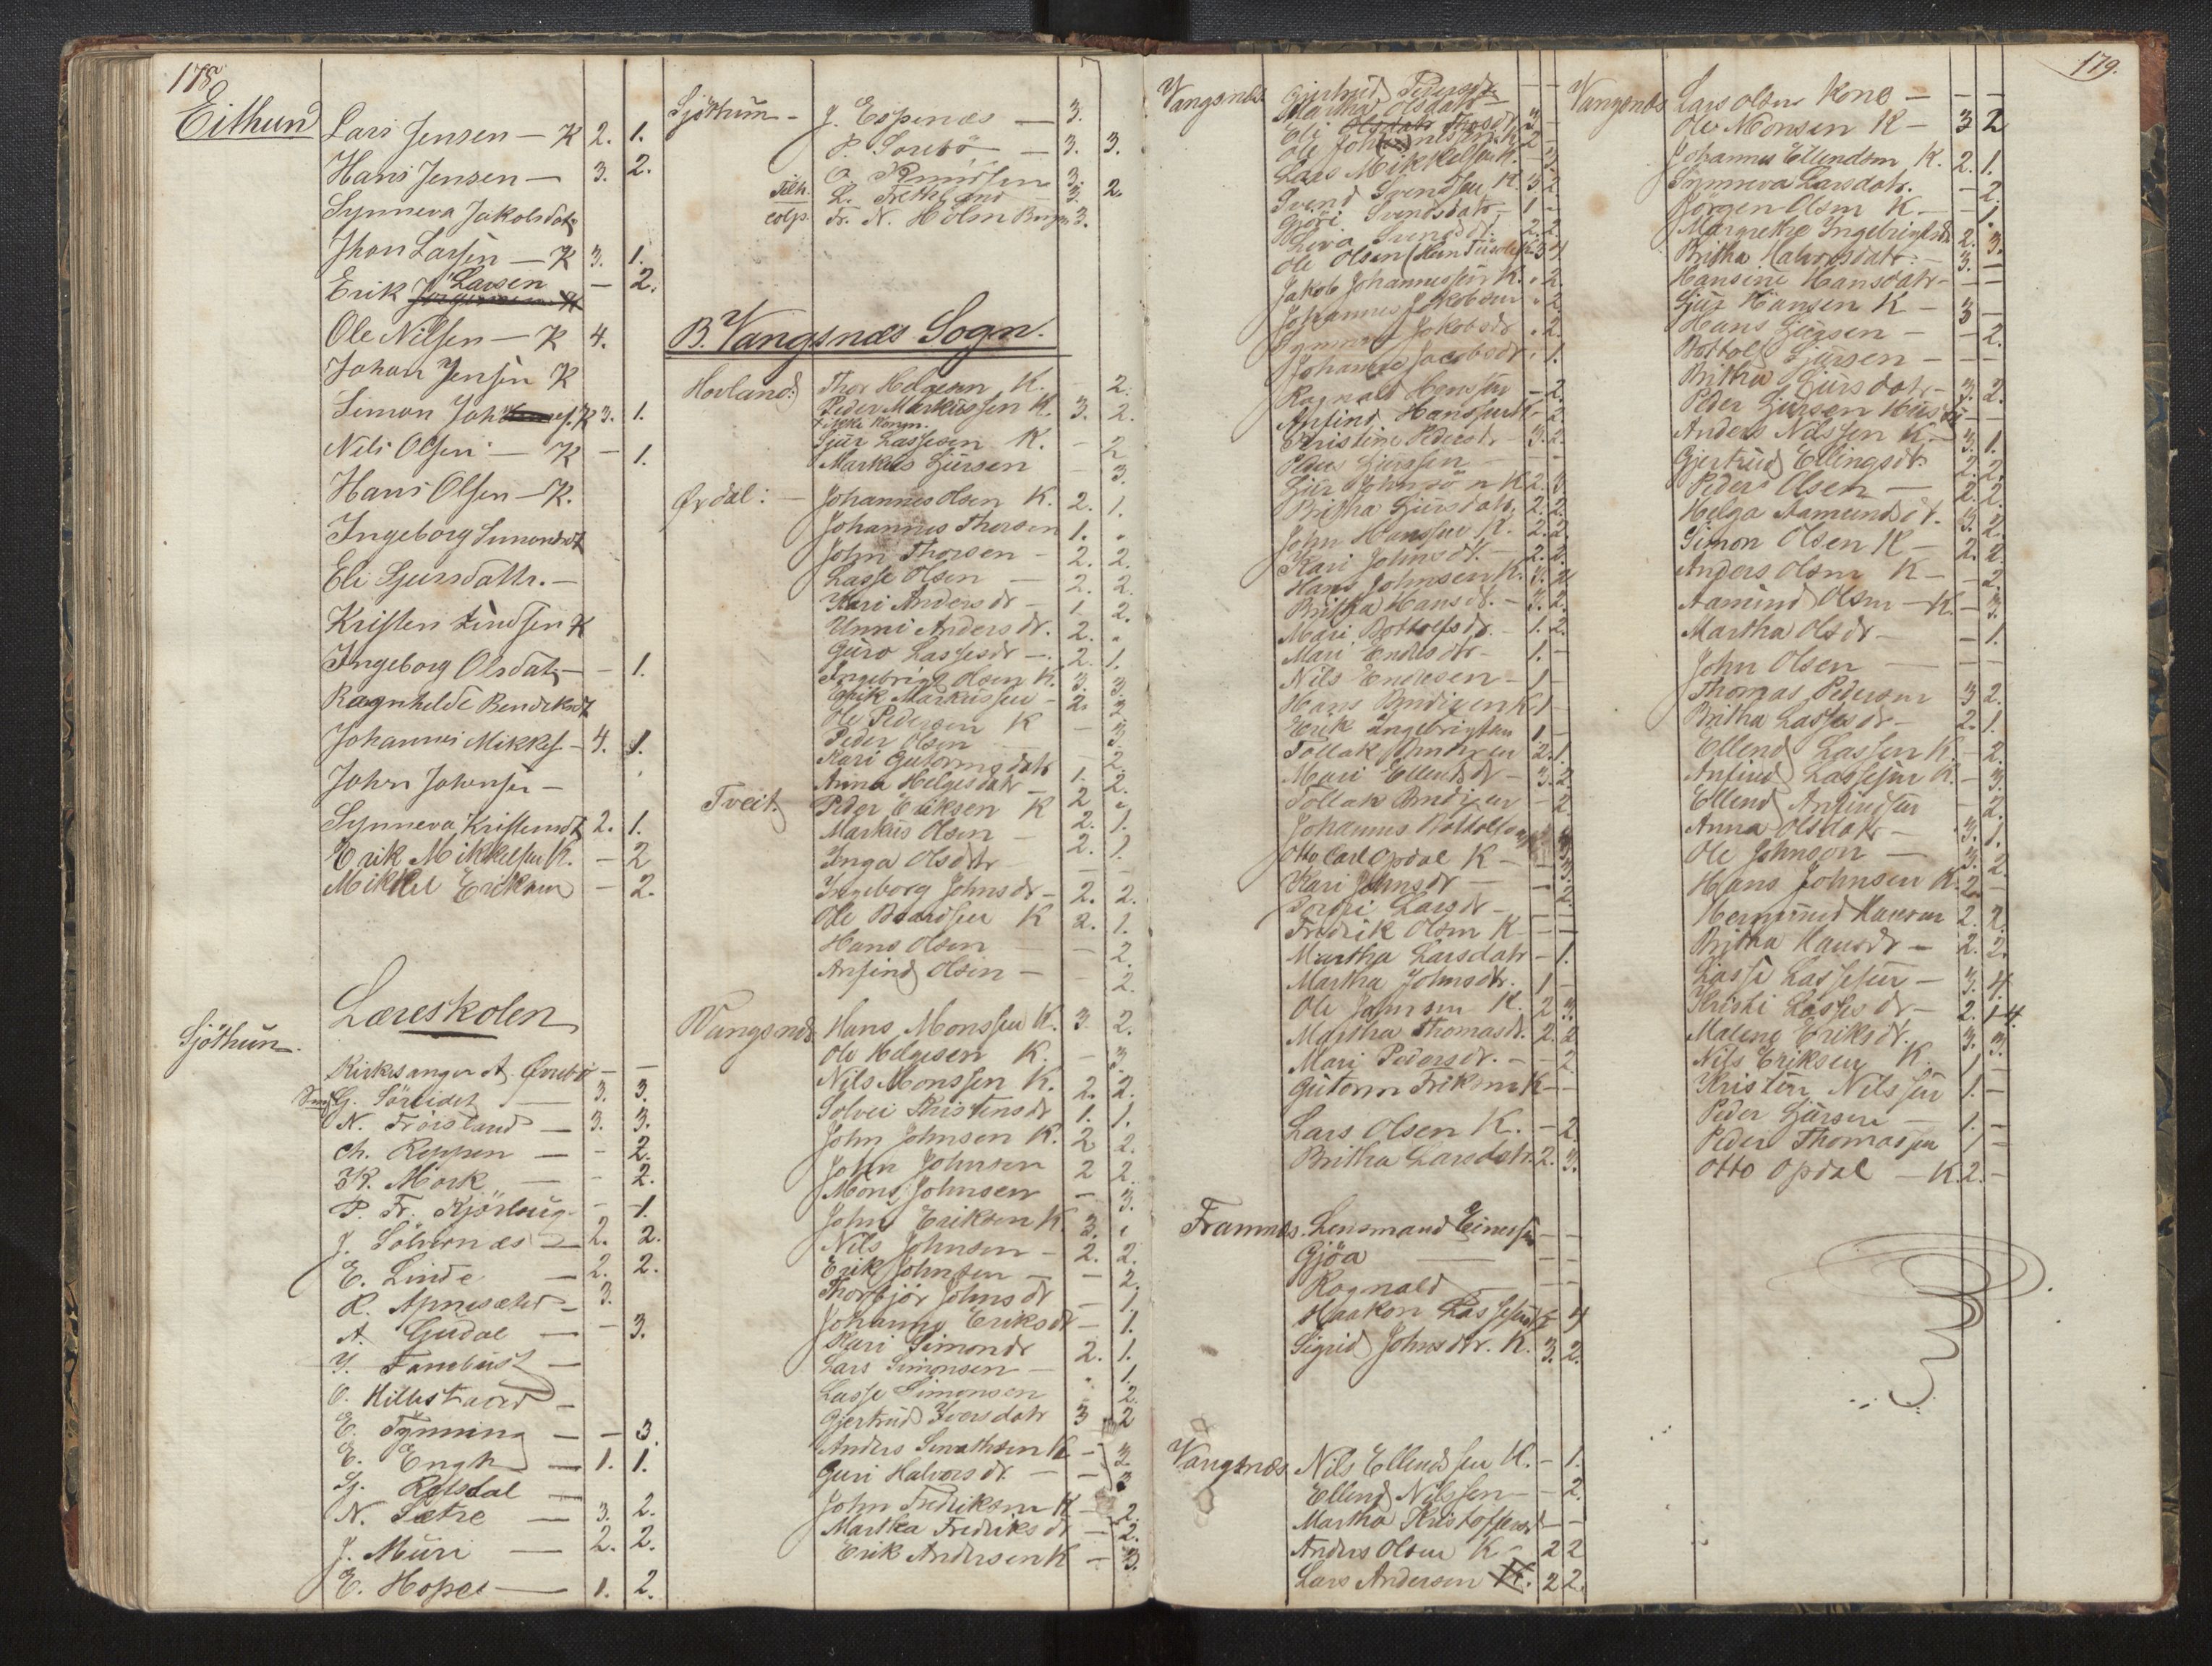 178
Eithun
Lars Jensen — K 2. 1.
Hans Jensen — 3. 2.
Synneva Jakobsdatr
Jhon Larsen — K 3. 1.
Erik Larsen — 2.
Ole Nilsen — K 4.
Johan Jensen K
Simon Joh K 3. 1.
Nils Olsen — K — 1.
Hans Olsen — K.
Ingeborg Simonsdt
Eli Sjursdattr. —
Kristen K
Ingeborg Olsdatr — — 1.
Ragnhilde Bendiksdt
Johannes Mikkels. — 4. 1.
John Johnsen —
Synneva Kristensdt 2. 1.
Erik Mikkelsen K. — 2
Mikkel Eriksen — 2.
Læreskolen
Sjöthun
Kirkesanger A. Övrebö — —
G. Sörlidet — 3. 3.
N. Fröisland — 3. 3.
Ch. Reppen — — 2.
K. Mork — — 2.
P. Fr. Kjörlaug — — 1.
J. Sölvernæs — 2. 2.
E. Linde — 2. 2.
R. Apnesæter — 3.
A. Gudal — — 3.
O. Hillestad —
E. Tynning — — 3.
E. Engh — 1. 1.
G. Refsdal —
N. Sætre — 3. 2.
J. Muri — 2. 2.
E. Hope — 1. 2.
Sjöthun — J. Espenæs — 3.
P. Sorebö — 3. 3.
O. Knudsen 3.
L. Frethland — 3. 2.
Fr. N. Holm 3.
B. Vangsnæs Sogn.
Hovland: Thor Helgesen K. — 2.
Peder Markussen K. 3. 2.
Sjur Lassesen K. — 2
Markus Sjursen — 3.
Ördal: — Johannes Olsen K. 2. 1.
Johannes Thorsen 1. .
John Thorsen — 2. 2.
Lasse Olsen — 2. 2.
Kari Andersdr — 1. 2.
Unni Andersdr. 2. .
Guro Lassesdr — 2. 1.
Ingebrigt Olsen K. 3. 3.
Erik Markussen — 2. 2
Ole Pedersen K — 3.
Peder Olsen
Kari Gutormsdatr — 2.
Anna Helgesdatr — 1. 2.
Tveit. Peder Eriksen K 2 .
Markus Olsen — 2. 1.
Inga Olsdtr 2. 1.
Ingeborg Johnsdr — 2. 2.
Ole Baardsen K 2. 1.
Hans Olsen — 2.
Anfind Olsen — — 2.
Vangsnæs Hans Monssen K. 3. 2.
Ole Helgesen K. — 3
Nils Monssen K. 2. 2.
Solvei Kristensdr 1. 1.
John Johnsen K. 2 2.
John Johnsen 2 2.
Mons Johnsen — 3.
John Eriksen K 3. .
Nils Johnsen — 2. 2.
Erik Johnsen — — 2.
Thorbjör Johnsdr — 1.
Johanna Eriksdr — 1.
Kari Simonsdr 2. 1.
Lars Simonsen — . 1.
Lasse Simonsen — 2.
Gjertrud Iversdatr 3 2
Anders K — 3.
Guri Halvorsdr. — — 3
John Fredriksen K — 2.
Martha Fredriksdr — 2.
Erik Andersen K — 3.
179.
Vangsnæs Gjertrud Pedersdr — —
Martha Olsdatr —
Eli
Ole
Lars Mikkelsen K. — 3
Svend Svendsen K. 3 2
Gjöri Svendsdatr — 1 —
Svendsdr. 2. 2.
Ole Olsen 3 4
Jakob Johannessen K. . 2
Johannes Jakobsen . 2.
Synneva Jakobsdr . 2.
Johanna Jacobsdr . 1.
Ragnald Hanssen — 2.
Anfind Hanssen K — 2
Christine Pedersdr — 3. 2.
Peder Sjurssen — — —
Sjur Johnsön K 2. 3
Britha Sjursdatr 2. 2.
John Hanssen K. 2. 2.
Kari Johnsdr. — 2. 2.
Hans Johnsen K. 3. 2
Britha Hansdr. — 3. 2.
Mari Bottolfsdr. — 1. 2.
Mari Endresdtr — 1. —
Nils Endresen — 1 —
Hans K 1 —
Erik Ingebrigtsen 1 —
Tollak 2. 1.
Mari Ellendsdr — 3. 2.
Tollak — 2.
Johannes Bottolfsen
Otto Carl Opdal K — — 3.
Kari Johnsdr — — 2.
Larsdr — — —
Fredrik Olsen K — —
Martha Larsdatr — 1.
Martha Johnsdtr. 1 —
Ole Johnsen K. 2 3.
Martha Thomasdr. 2. 2
Mari Pedersdr. — — 2
Gutorm Eriksen K — —
Lars Olsen K. — 2.
Britha Larsdatr. 2. 3.
Framnæs. Lensmand — —
Gjöa — — —
Ragnald — — —
Haakon Lassesen 4
Sigrid Johnsdtr. K. 3. 2.
Vangsnæs. Nils Ellendsen K. — 1.
Ellend Nilssen — — 2.
Martha Kristoffersdr — —
Anders Olsen K — 2 2
Lars Andersen 2 2.
Vangsnæs Lars Olsen Kone — — —
Ole Monsen K — 3 2
Johannes Ellendsen K. 2. 1.
Synneva Larsdatr. — 2.
Jörgen Olsen K — — 1.
Margrethe Ingebrigtsdr 2. 3.
Britha Halvorsdatr. — 3. —
Hansine Hansdatr — — —
Sjur Hansen K — 3 —
Hans Sjursen — — 2.
Bottolf Sjursen — — —
Britha Sjursdatr — 3. 2.
Peder Sjursen — —
Anders Nilssen K. — 3. 1.
Gjertrud Ellingsdt. 2. 2.
Peder Olsen — 2. 2.
Helga Aamundsdt. 3. 2.
Simon Olsen K — 2. 2
Anders Olsen K — — 2
Aamund Olsen — K. — 3.
Martha Olsdr — — 1.
John Olsen — — —
Thomas Pedersen 3 2.
Britha Lassesdr — 2. 1.
Ellend Lassen K. — 2.
Anfind Lassesen K. — 3.
Ellend Anfindsen — 2.
Anna Olsdatr — 3. 1.
Ole Johnson — 3. 2.
Hans Johnsen K. 2 —
Hermund Hansen 2. 2.
Britha Hansdr — 2. 2.
Lasse Lassesen — 3. 4.
Kristi Lassesdr — 2. 1 4.
Malene Eriksdr. 3. 3.
Nils Eriksen K. 1 —
Kristen Nilssen 1. —
Peder Sjursen — 1. —
Peder Thomassen 1 —
Otto Opdal — K. 2. —